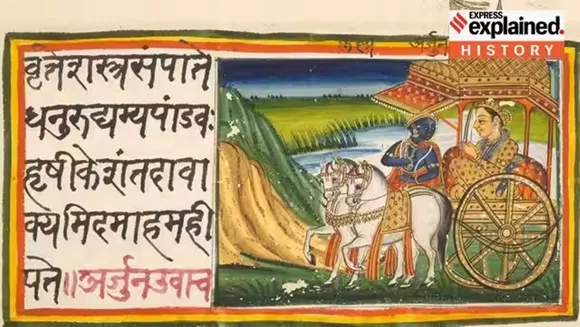 EXPRESS
explained.
HISTORY
अर्जुन
वृत्तेशस्त्रसंपाते
धनुरुद्यम्यपांडवः
हृषीकेशंतदावा
क्यमिदमाहमही
पते॥अर्जुनउवाच